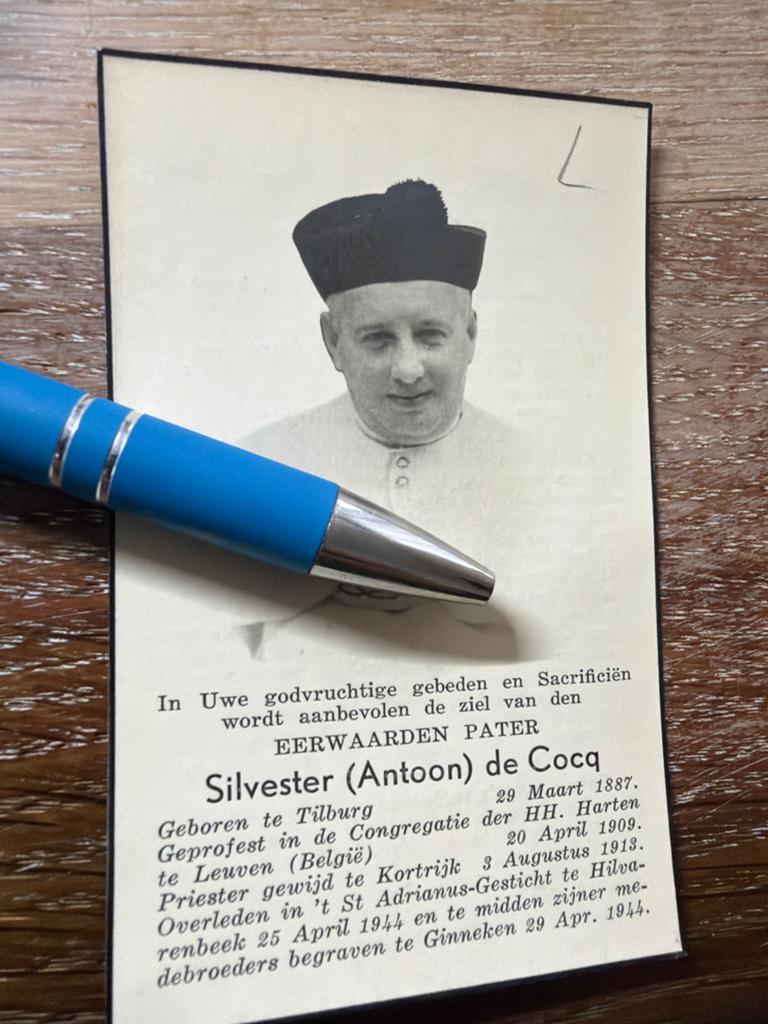 In Uwe godvruchtige gebeden en Sacrificiën
wordt aanbevolen de ziel van den
EERWAARDEN PATER
Silvester (Antoon) de Cocq
Geboren te Tilburg 29 Maart 1887.
Geprofest in de Congregatie der HH. Harten
te Leuven (België) 20 April 1909.
Priester gewijd te Kortrijk 3 Augustus 1913.
Overleden in 't St Adrianus-Gesticht te Hilva-
renbeek 25 April 1944 en te midden zijner me-
debroeders begraven te Ginneken 29 Apr. 1944.